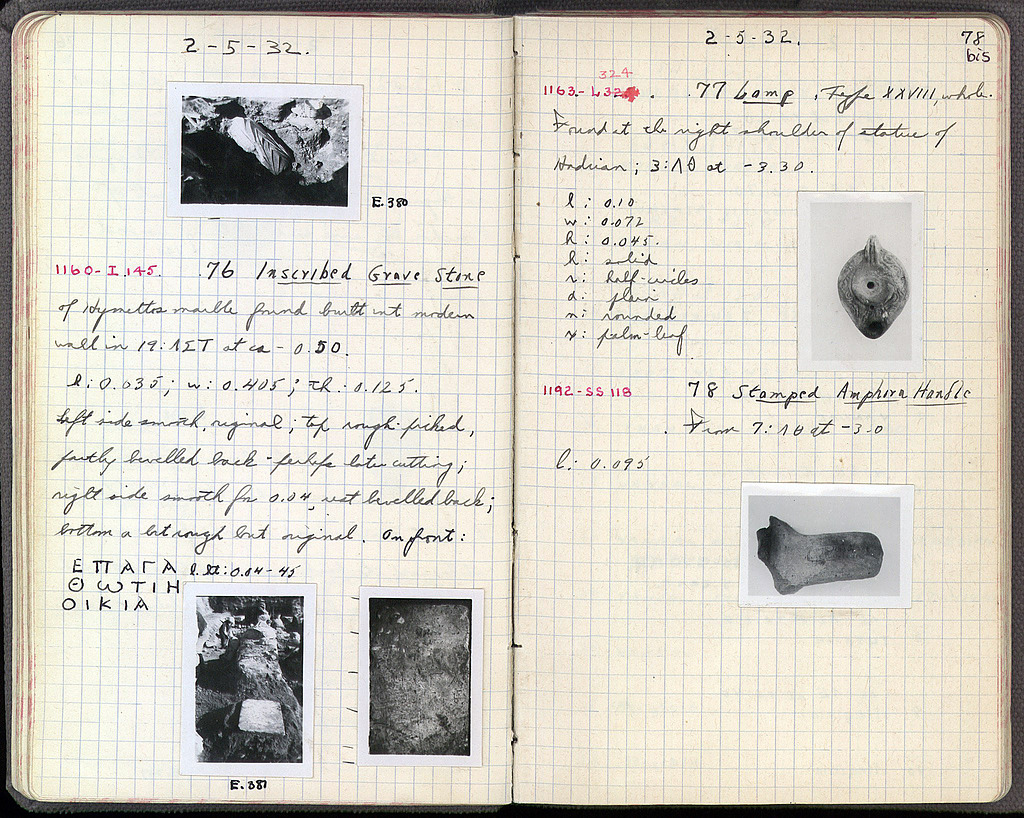 2-5-32.
E.380
1160-I.145. .76 Inscribed Grave Stone
of Hymettos marble found built int modern
wall in 19:ΛΣΤ at ca -0.50.
l: 0.035; w: 0.405; th.: 0.125.
Left side smooth, original; top rough-picked,
partly bevelled back - perhaps later cutting;
right side smooth for 0.04, rest bevelled back;
bottom a bit rough but original. On front:
ΕΠΑΓΑ l.ht: 0.04-45
ΘωΤΙΗ
ΟΙΚΙΑ
E.381
2-5-32. 78
bis
324
1163.- L . .77 Lamp, Type XXVIII, whole.
Found at the right shoulder of statue of
Hadrian; 3:ΛΘ at -3.30.
l: 0.10
w: 0.072
h: 0.045.
h: solid
r: half-circles
d: plain
n: rounded
x: palm-leaf
1192-SS 118 78 Stamped Amphora Handle
. From 7:ΛΘ at -3.0
l: 0.095